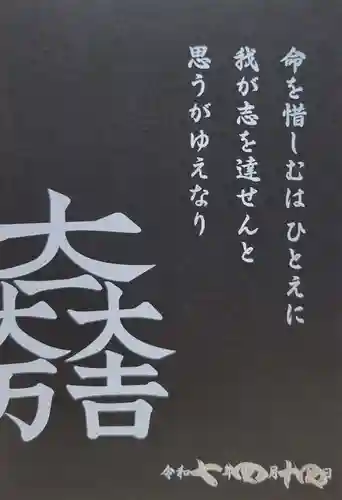 命を惜しむはひとえに
我が志を達せんと
思うがゆえなり
大一大万大吉
令和七年四月十日